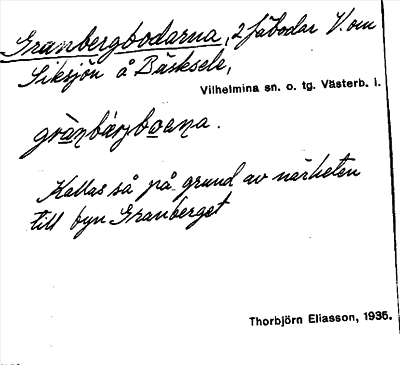 Granbergbodarna, 2 fäbodar V. om
Siksjön å Bäsksele,
Vilhelmina sn. o. tg. Västerb. l.
grànbárjboɛna.
Kallas så på grund av närheten
till byn Granberget
Thorbjörn Eliasson, 1935.